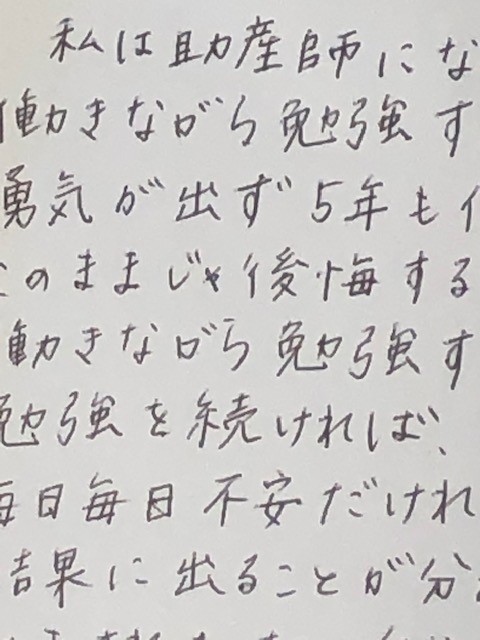 私は助産師にな
働きながら勉強す
勇気が出ず5年も
のままじゃ後悔する
働きながら勉強す
勉強を続ければ、
毎日毎日不安だけれ
結果に出ることが分